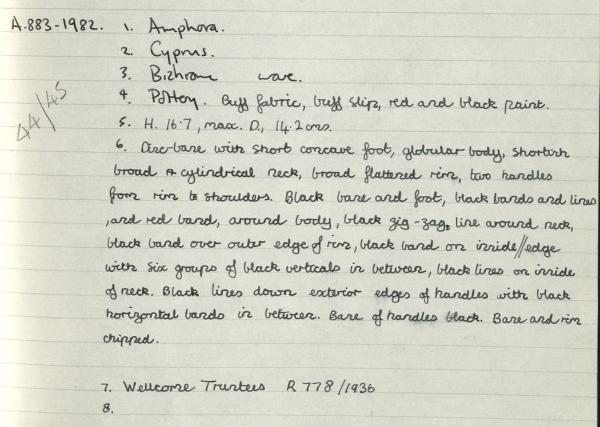 A.883-1982. 1. Amphora.
2. Cyprus.
3. Bichrome ware.
44/45
4. Pottery. Buff fabric, buff slip, red and black paint.
5. H. 16.7, max. D., 14.2 cms.
6. Disc-base with short concave foot, globular body, shortish
broad cylindrical neck, broad flattened rim, two handles
from rim to shoulders. Black base and foot, black bands and lines
, and red band, around body, black zig-zag line around neck,
black band over outer edge of rim, black band on inside//edge
with six groups of black verticals in between, black lines on inside
of neck. Black lines down exterior edges of handles with black
horizontal bands in between. Base of handles black. Base and rim
chipped.
7. Wellcome Trustees R 778/1936
8.